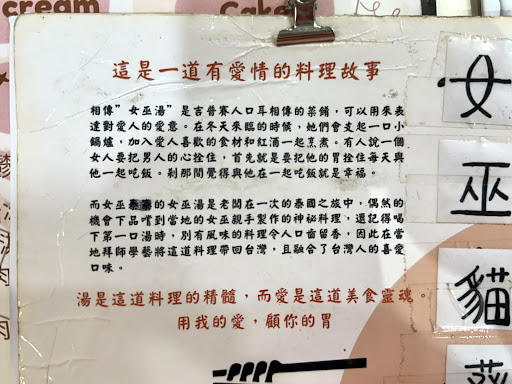 cream
Cake
這是一道有愛情的料理故事
相傳”女巫湯”是吉普賽人口耳相傳的菜餚，可以用來表
達對愛人的愛意。在冬天來臨的時候，她們會支起一口小
鍋爐，加入愛人喜歡的食材和紅酒一起烹煮。有人說一個
女人要把男人的心拴住，首先就是要把他的胃拴住每天與
他一起吃飯。剎那間覺得與他在一起吃飯就是幸福。
而女巫的女巫湯是老闆在一次的泰國之旅中，偶然的
機會下品嚐到當地的女巫親手製作的神祕料理，還記得喝
下第一口湯時，別有風味的料理令人口齒留香，因此在當
地拜師學藝將這道料理帶回台灣，且融合了台灣人的喜愛
口味。
湯是這道料理的精髓，而愛是這道美食靈魂。
用我的愛，顧你的胃
女
巫
貓